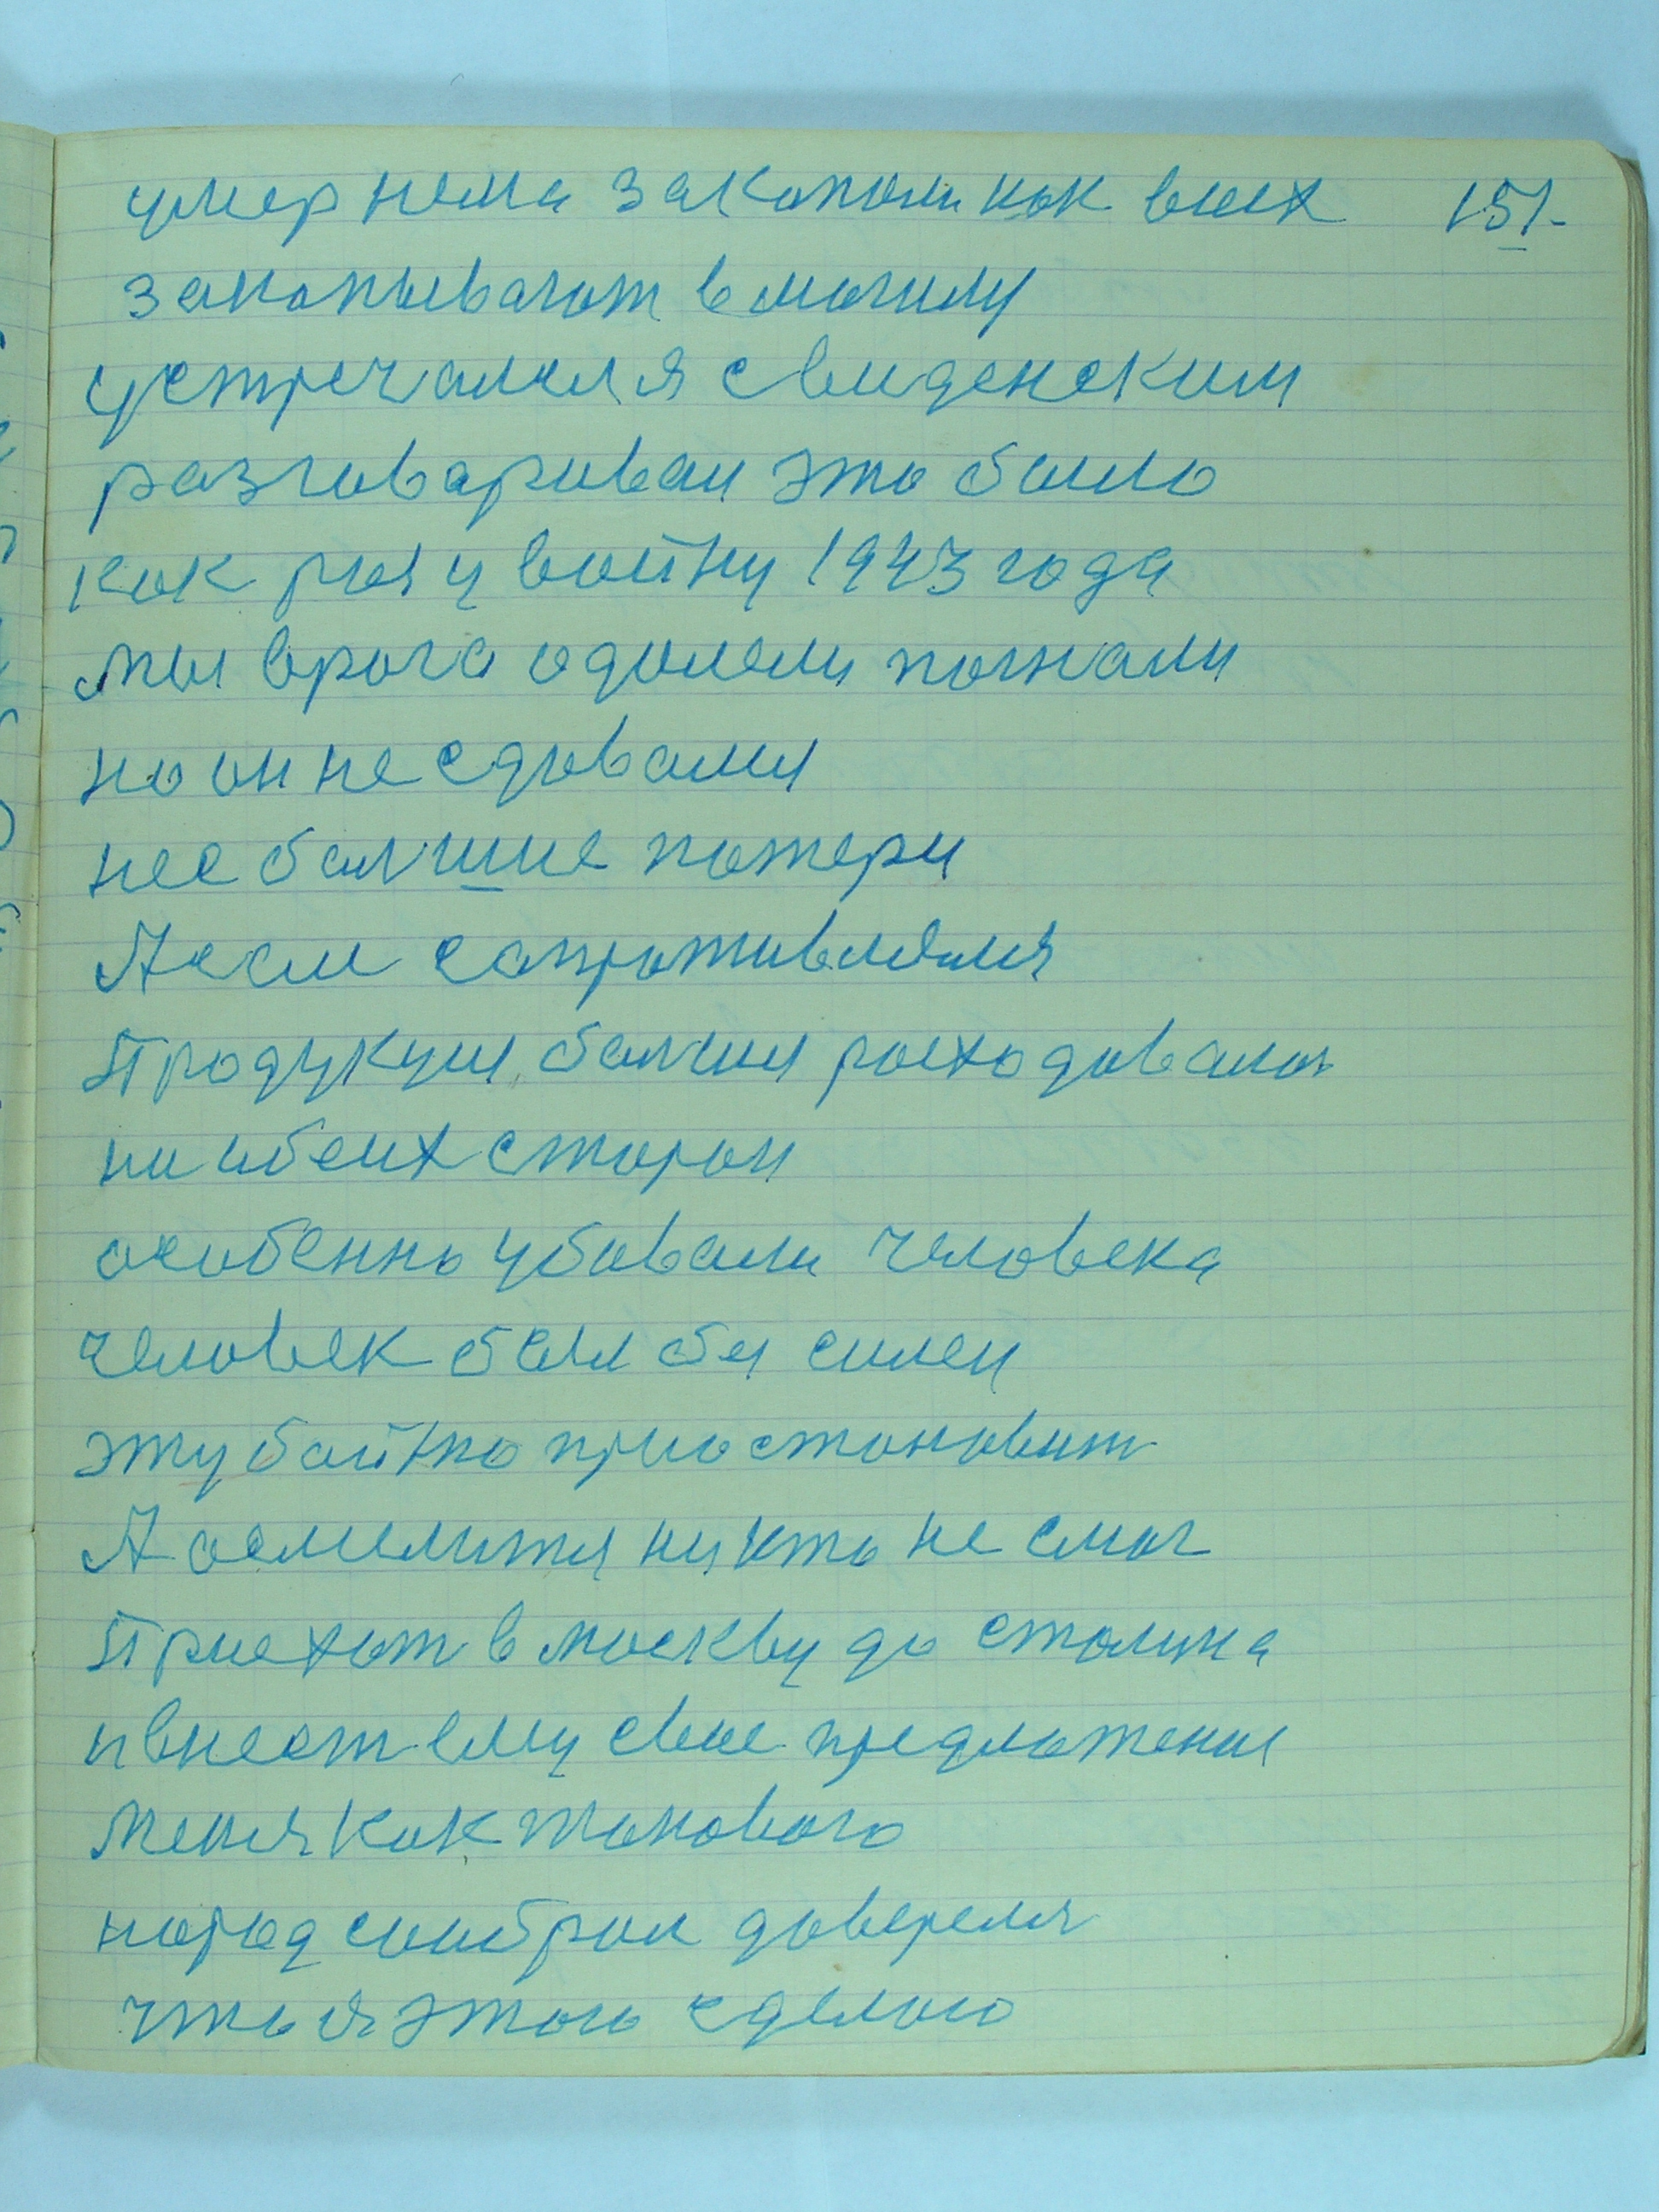 умер нема закопали как всех 151.
закопывают в могилу
устречался я с Введенским
разговаривал это было
как раз у войну 1943 года
мы врага одолели погнали
но он не сдавался
нес балшие потери
А если сапротивлялся
Продукция балшая росходовалась
на обеих сторон
особенно убовали человека
человек был бы силен
эту бойню приостоновит
А осмелится никто не смог
Приехат в москву до сталина
и внест ему свое предложения
меня как токового
народ собрал доверился
что я этого сделаю